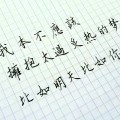 我本不應該
擁抱太過炙熱的夢
比如明天比如你